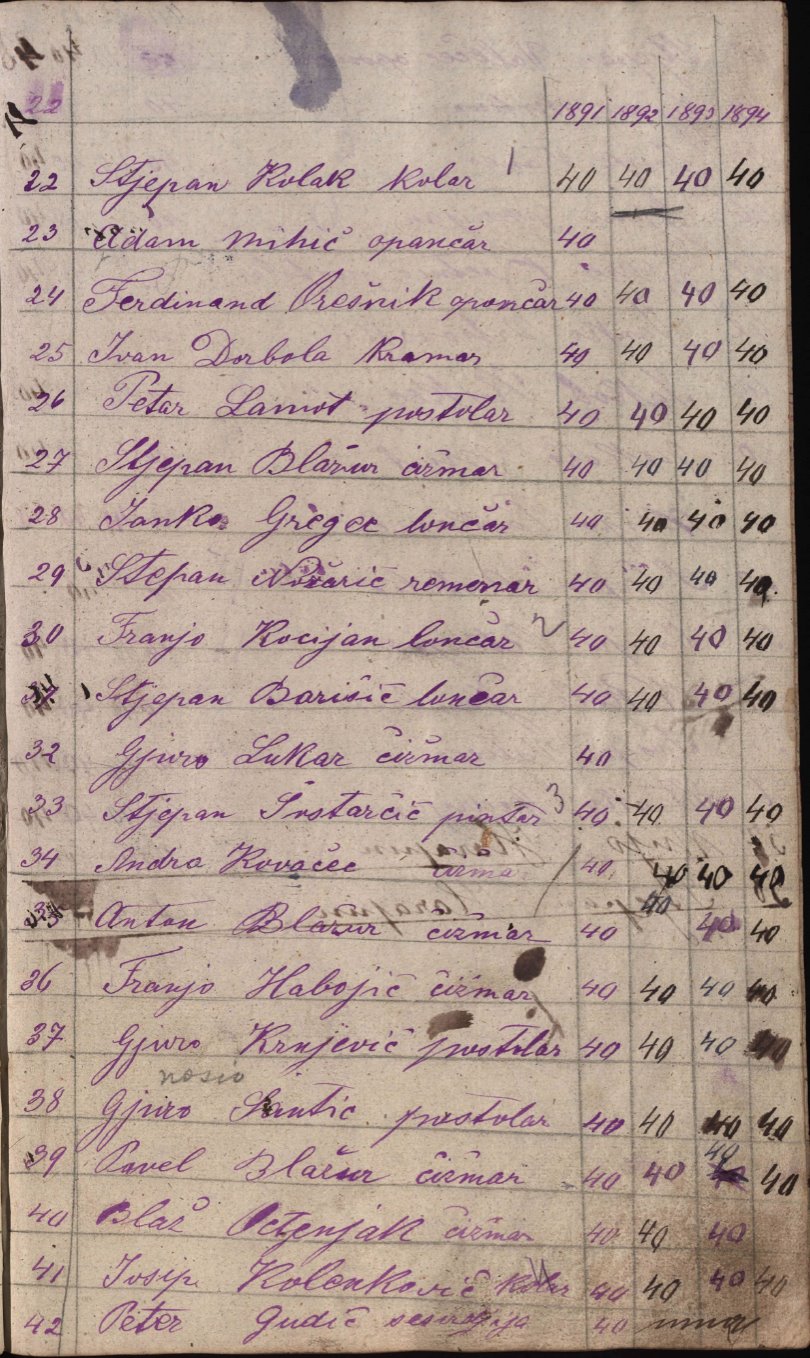 22
1891 1892 1893 1894
22 Stjepan Kolak kolar 1 40 40 40 40
23 Adam Mihič opančar 40
24 Ferdinand Orešnik opančar 40 40 40 40
25 Ivan Dorbola Kramar 40 40 40 40
26 Petar Lamot postolar 40 40 40 40
27 Stjepan Blažur čižmar 40 40 40 40
28 Janko Gregec lončar 40 40 40 40
29 Stepan remenar 40 40 40 40
30 Franjo Kocijan lončar 2 40 40 40 40
Stjepan Barišič lončar 40 40 40 40
32 Gjuro Lukar čižmar 40
33 Stjepan pintar 3 40 40 40 40
34 Andro Kovačec čizmar 40 40 40 40
Anton Blažur čižmar 40 40 40 40
36 Franjo Habojič čižmar 40 40 40 40
37 Gjuro Krnjevič postolar 40 40 40 40
nosio
38 Gjuro postolar 40 40 40 40
40
39 Pavel Blažur čižmar 40 40 40
40 Blaž čižmar 40 40 40
41 Josip Kolenkovič 40 40 40 40
42 Peter Gudič 40